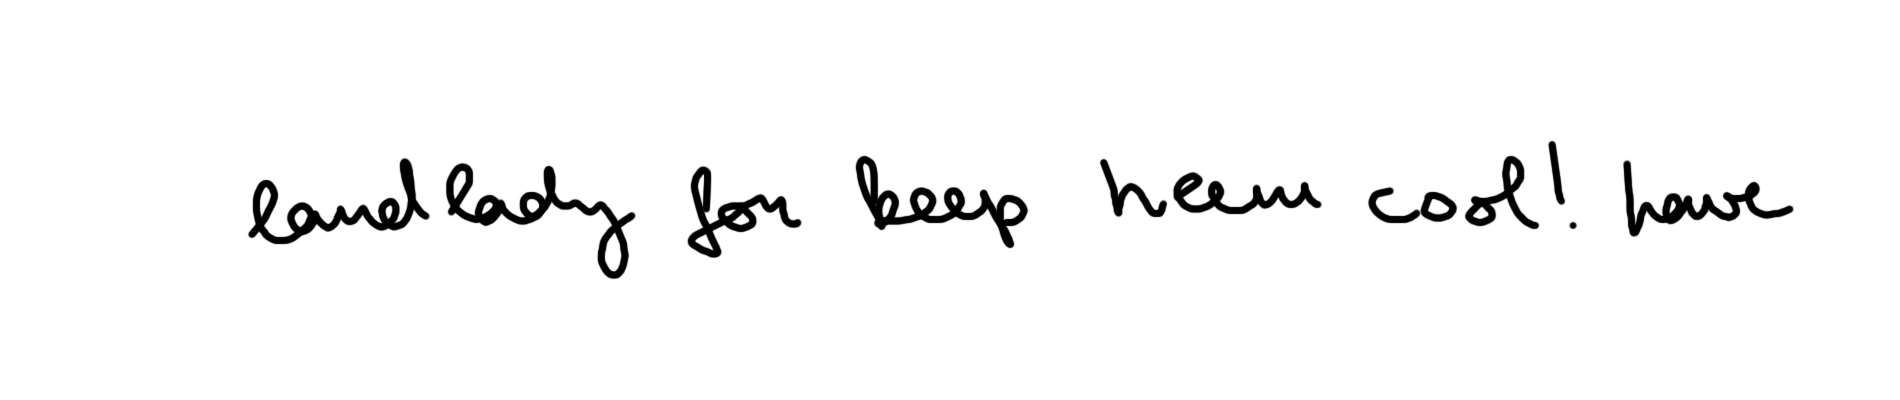 landlady for keep heem cool! have